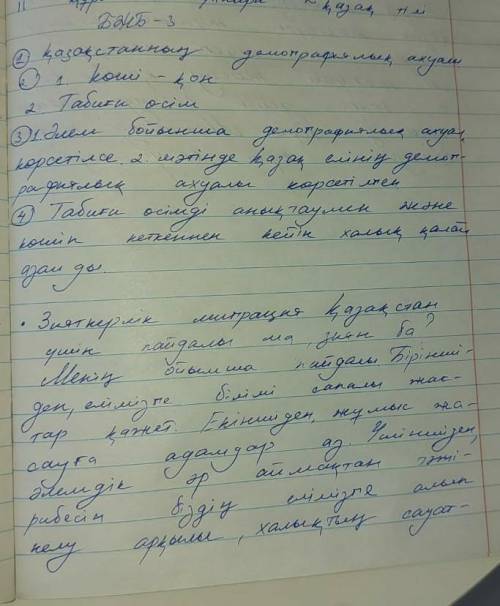 қазақ тілі
БЖБ - 3
② Қазақстанның демографиялық ахуалы
1 Көші - қон
2 Табиғи өсім
③ 1 Әлем бойынша демографиялық ахуал
көрсетілсе 2 мәтінде Қазақ елінің демог-
рафиялық ахуалы көрсетілген
④ Табиғи өсімді анықтаумен және
көшіп кеткеннен кейін халық қалай
азайды.
• Зияткерлік миграция Қазақстан
үшін пайдалы ма, зиян ба?
Менің ойымша пайдалы. Бірінші-
ден, елімізге білімі сапалы жас-
тар қажет. Екіншіден, жұмыс жа-
сауға адамдар аз. Үшіншіден,
әлемдік әр аймақтан тәжі-
рибесін біздің елімізге алып
келу арқылы, халықтың сауат-